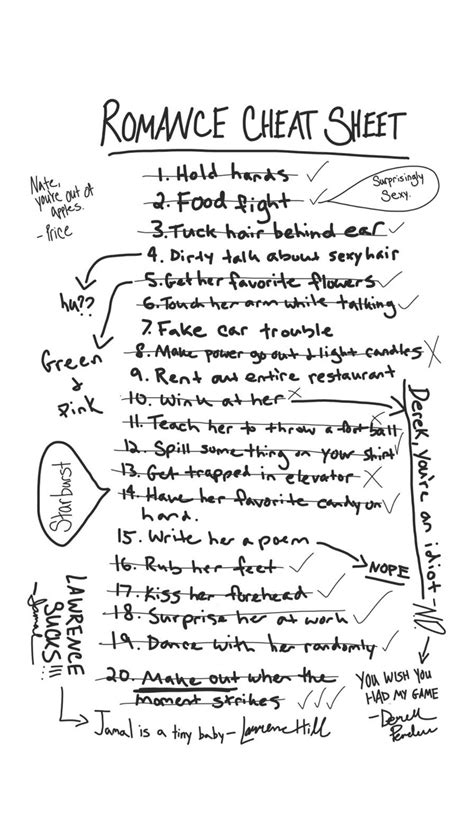 ROMANCE CHEAT SHEET
Nate,
you're out of
apples.
-Price
1. Hold hands ✓
2. Food fight ✓
Surprisingly
Sexy.
3. Tuck hair behind ear ✓
4. Dirty talk about sexy hair
hu??
5. Get her favorite flowers ✓
Green
+
pink
6. Touch her arm while talking ✓
7. Fake car trouble
8. Make power go out & light candles X
9. Rent out entire restaurant
10. Wink at her X
Derek, you're an idiot -ND.
11. Teach her to throw a football X
12. Spill something on your shirt ✓
13. Get trapped in elevator X
14. Have her favorite candy on ✓
hand.
Starburst
15. Write her a poem
NOPE
16. Rub her feet ✓
17. Kiss her forehead ✓
18. Surprise her at work ✓
19. Dance with her randomly ✓
20. Make out when the
moment strikes ✓✓✓
LAWRENCE
SUCKS!!!
-Jamal
Jamal is a tiny baby - Lawrence Hill
YOU WISH YOU
HAD MY GAME
-Derek